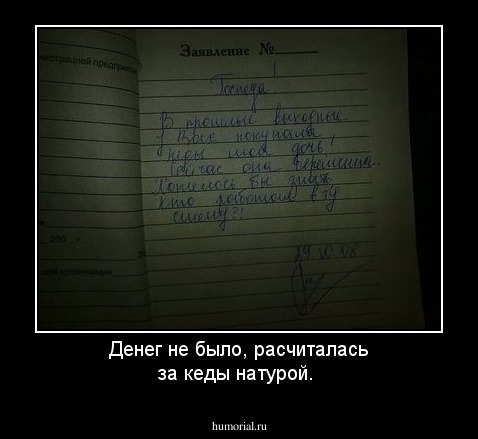 Заявление №
страцией предприятия
Господа!
В прошлые выходные
у Вас покупала
кеды моя дочь!
Сейчас она беременна.
Хотелось бы знать
кто работал в ту
смену?!
200 г.
организации
29.10.08
Денег не было, расчиталась
за кеды натурой.
humorial.ru